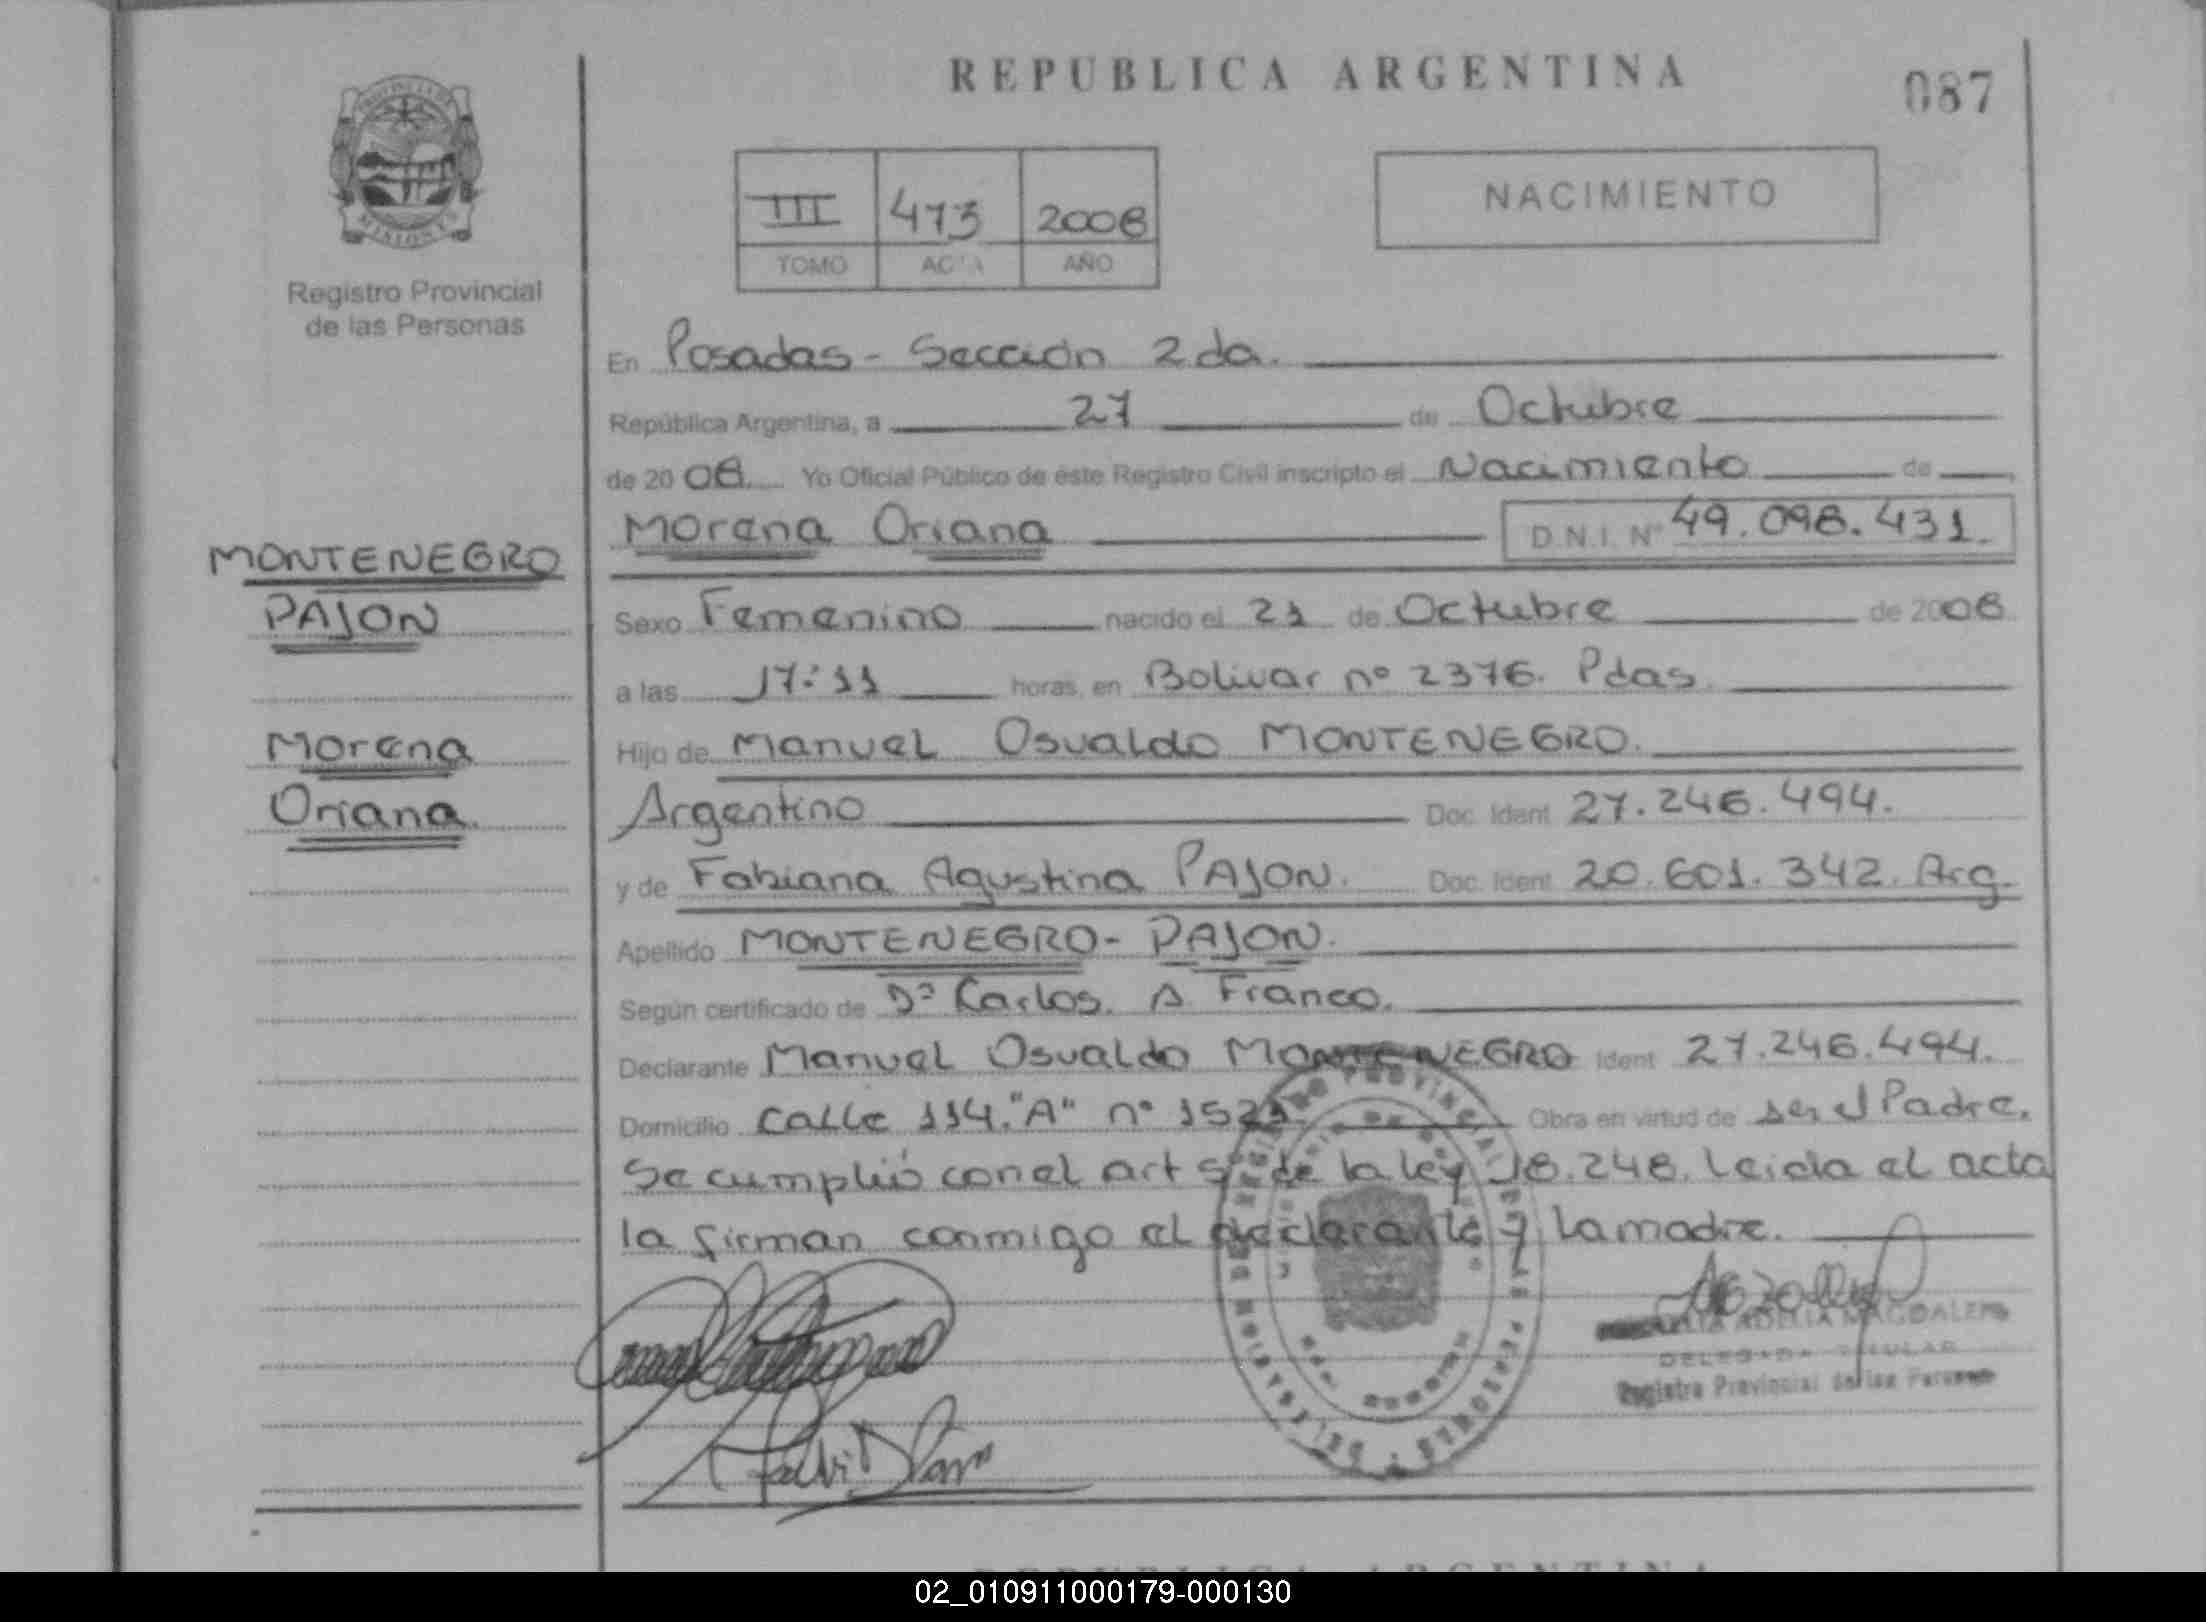 REPUBLICA ARGENTINA
087
III 473 2008
TOMO ACTA AÑO
NACIMIENTO
PROVINCIA DE
MISIONES
Registro Provincial
de las Personas
En Posadas - Sección 2da.
República Argentina, a 27 de Octubre
de 2008 Yo Oficial Público de este Registro Civil inscripto el Nacimiento de
Morena Oriana D.N.I. Nº 49.098.431.
MONTENEGRO
PAJON
Morena
Oriana
Sexo Femenino nacido el 21 de Octubre de 2008
a las 17:11 horas, en Bolivar nº 2376. Pdas.
Hijo de Manuel Osvaldo MONTENEGRO.
Argentino Doc. Ident 27.246.494.
y de Fabiana Agustina PAJON. Doc. Ident 20.601.342. Arg.
Apellido MONTENEGRO - PAJON.
Según certificado de Dr Carlos. A. Franco.
Declarante Manuel Osvaldo MONTENEGRO Ident 27.246.494.
Domicilio Calle 114. "A" nº Obra en virtud de ser el Padre.
Se cumplió con el art 5º de la ley 18.248. Leida el acta
la firman conmigo el declarante y la madre.
ADELIA MAGDALENA
DELEGADA TITULAR
Registro Provincial de las Personas
REGISTRO PROVINCIAL DE LAS PERSONAS
REPUBLICA ARGENTINA
02_010911000179-000130